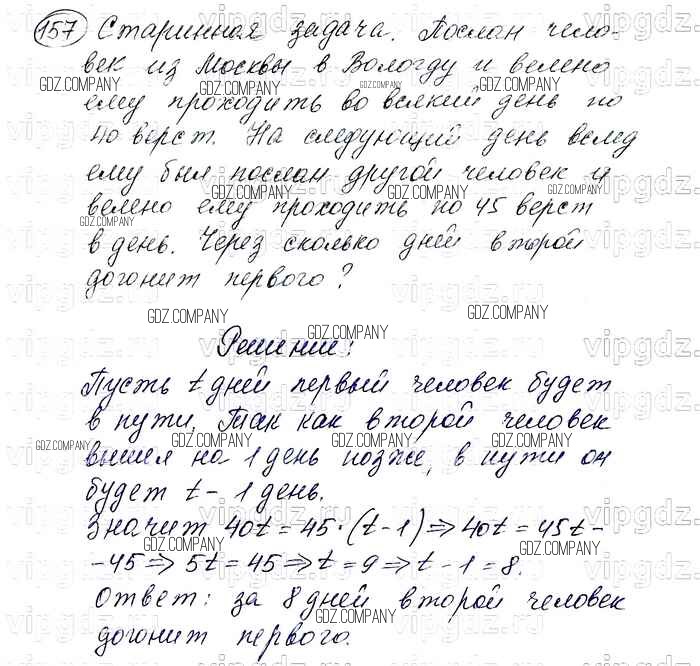 157 Старинная задача. Послан чело-
век из Москвы в Вологду и велено
ему проходить во всякий день по
40 верст. На следующий день вслед
ему был послан другой человек и
велено ему проходить по 45 верст
в день. Через сколько дней второй
догонит первого?
Решение:
Пусть t дней первый человек будет
в пути. Так как второй человек
вышел на 1 день позже, в пути он
будет t - 1 день.
Значит 40t = 45·(t-1) ⇒ 40t = 45t -
-45 ⇒ 5t = 45 ⇒ t = 9 ⇒ t - 1 = 8.
Ответ: за 8 дней второй человек
догонит первого.
GDZ.COMPANY
vipgdz.ru